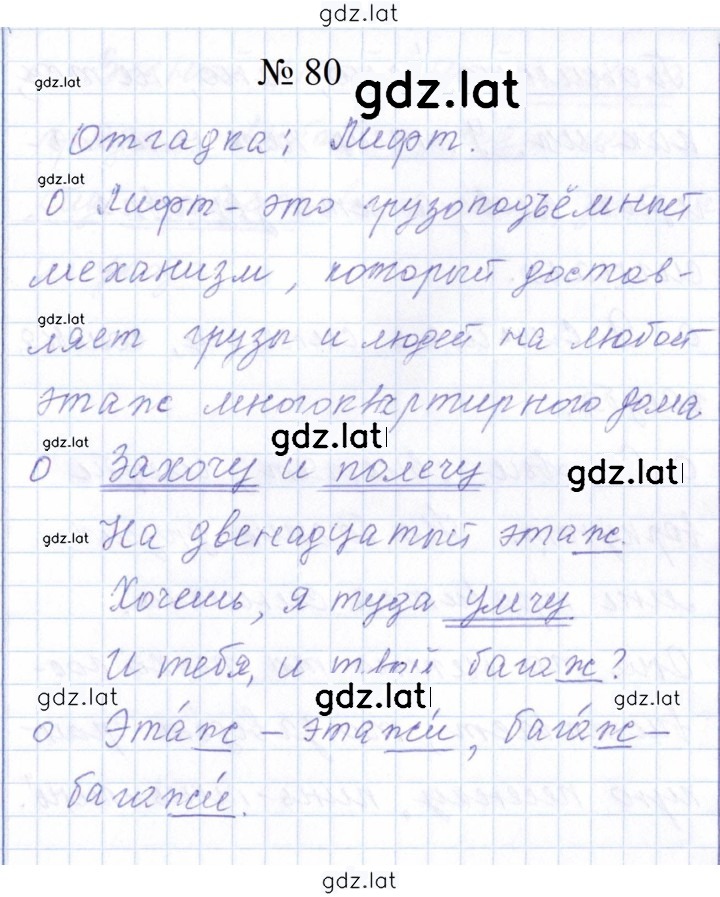 gdz.lat
№ 80
gdz.lat
gdz.lat
Отгадка: Лифт.
gdz.lat
О Лифт - это грузоподъёмный
механизм, который достав-
gdz.lat
ляет грузы и людей на любой
этаж многоквартирного дома
gdz.lat
gdz.lat
О Захочу и полечу
gdz.lat
gdz.lat
На двенадцатый этаж.
Хочешь, я туда умчу
И тебя, и твой багаж?
gdz.lat
gdz.lat
gdz.lat
О Эта́ж - этажи́, бага́ж -
багажи́.
gdz.lat